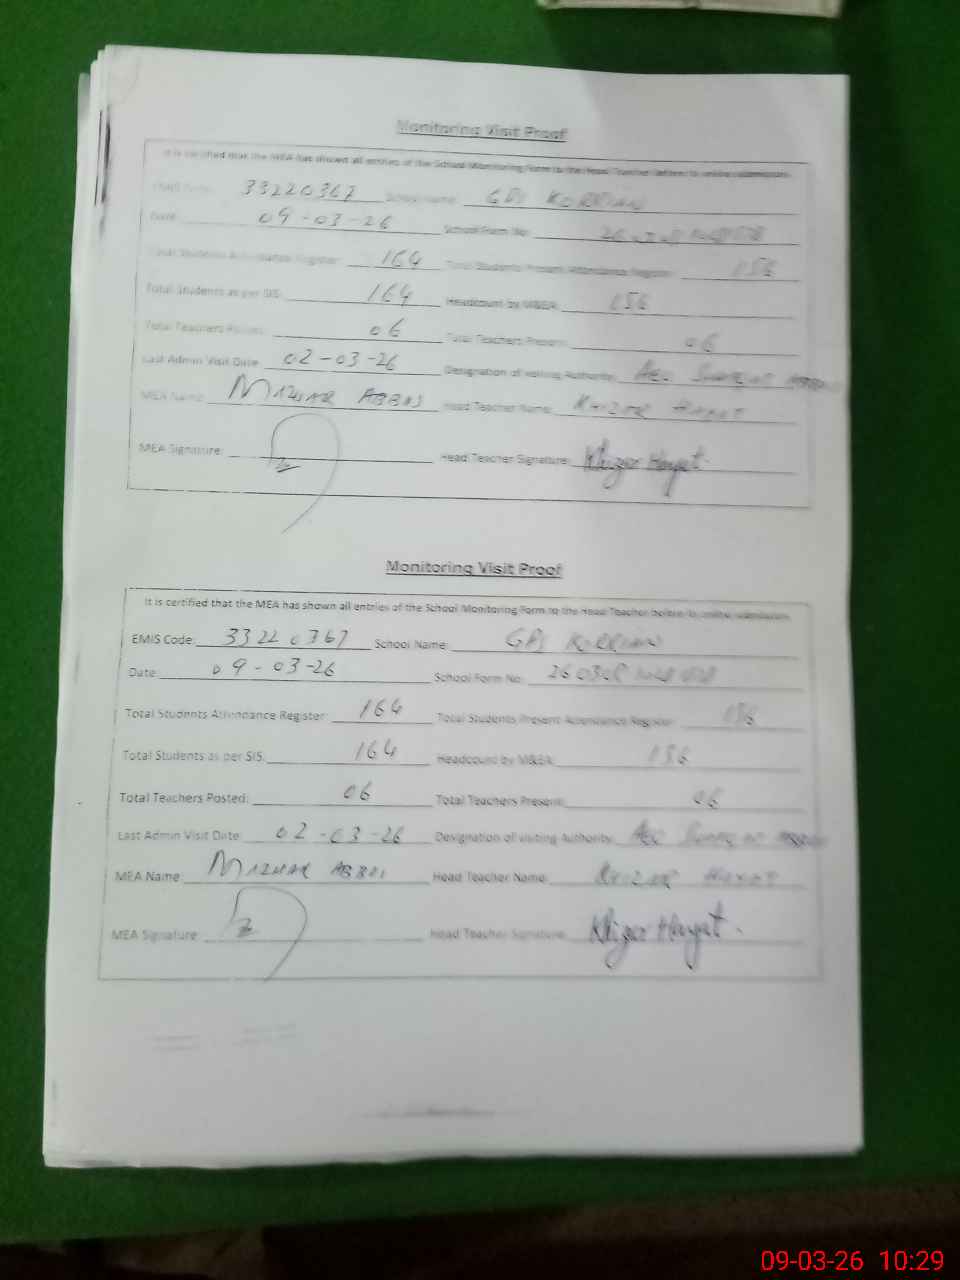 Monitoring Visit Proof
It is certified that the MEA has shown all entries of the School Monitoring Form to the Head Teacher before its online submission
EMIS Code: 33220367 School Name: GPS KORRIAN
Date: 09-03-26 School Form No:
Total Students Attendance Register: 164 Total Students Present Attendance Register: 156
Total Students as per SIS: 164 Headcount by M&EA: 156
Total Teachers Posted: 06 Total Teachers Present: 06
Last Admin Visit Date: 02-03-26 Designation of visiting Authority: AEO
MEA Name: MAZHAR ABBAS Head Teacher Name: KHIZAR HAYAT
MEA Signature: Head Teacher Signature: Khizer Hayat.
Monitoring Visit Proof
It is certified that the MEA has shown all entries of the School Monitoring Form to the Head Teacher before its online submission
EMIS Code: 33220367 School Name: GPS KORRIAN
Date: 09-03-26 School Form No:
Total Students Attendance Register: 164 Total Students Present Attendance Register: 156
Total Students as per SIS: 164 Headcount by M&EA: 156
Total Teachers Posted: 06 Total Teachers Present: 06
Last Admin Visit Date: 02-03-26 Designation of visiting Authority: AEO
MEA Name: MAZHAR ABBAS Head Teacher Name: KHIZAR HAYAT
MEA Signature: Head Teacher Signature: Khizer Hayat.
09-03-26 10:29